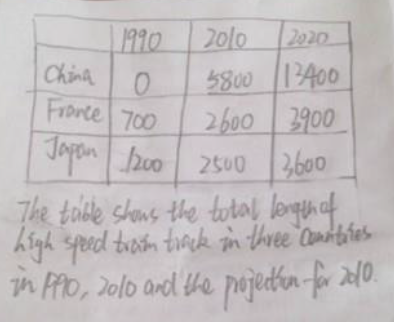 1990 2010 2020
China 0 5800 13400
France 700 2600 3900
Japan 1200 2500 3600
The table shows the total length of
high speed train track in three Countries
in 1990, 2010 and the projection for 2010.